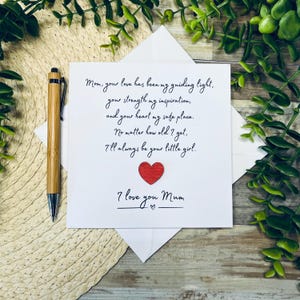 Mum, your love has been my guiding light,
your strength my inspiration,
and your heart my safe place.
No matter how old I get,
I'll always be your little girl.
I love you Mum